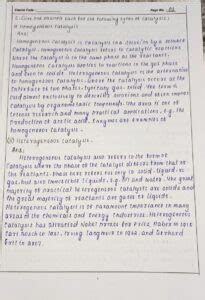 Course Code
Page No. 02
2. Give one example each for the following types of catalysis:
i) Homogeneous Catalysis
Ans:
Homogeneous catalysis is catalysis in a solution by a soluble
catalyst. Homogeneous catalysis refers to catalytic reactions
where the catalyst is in the same phase as the reactants.
Homogeneous catalysis applies to reactions in the gas phase
and even in solids. Heterogeneous catalysis is the alternative
to homogeneous catalysis, where the catalysis occurs at the
interface of two phases, typically gas-solid. The term is
used almost exclusively to describe solutions and often implies
catalysis by organometallic compounds. The area is one of
intense research and many practical applications, e.g. the
production of acetic acid. Enzymes are examples of
homogeneous catalysts.
ii) Heterogeneous catalysis.
Ans:
Heterogeneous catalysis also refers to the form of
catalysis where the phase of the catalyst differs from that of
the reactants. Phase here refers not only to solid, liquid vs
gas, but also immiscible liquids, e.g. oil and water. The great
majority of practical heterogeneous catalysts are solids and
the great majority of reactants are gases or liquids.
Heterogeneous catalysis is of paramount importance in many
areas of the chemical and energy industries. Heterogeneous
catalysis has attracted Nobel prizes for Fritz Haber in 1918
Carl Bosch in 1931, Irving Langmuir in 1932, and Gerhard
Ertl in 2007.